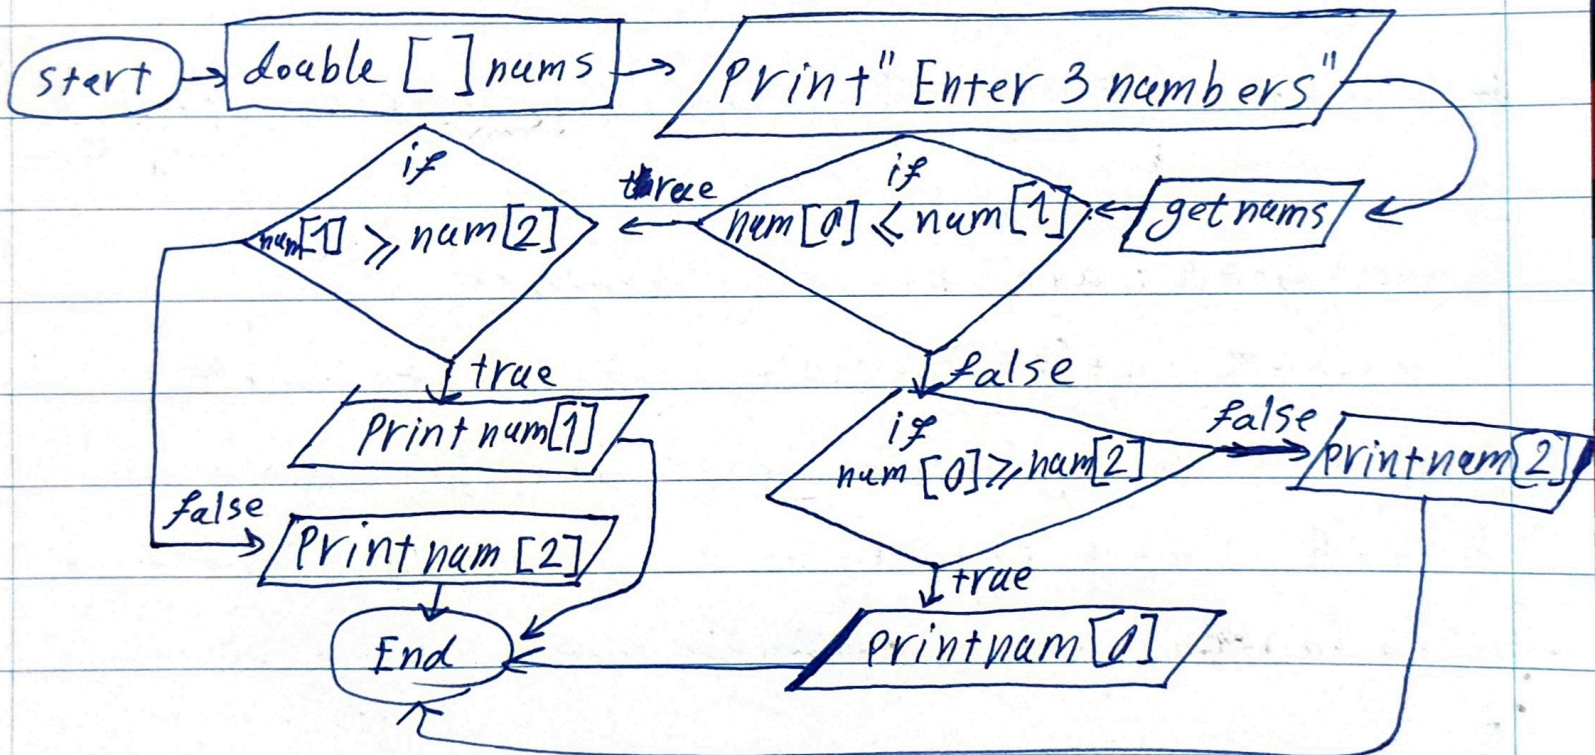 start
double [ ] nums
Print "Enter 3 numbers"
get nums
if
num[0] ⩽ num[1]
true
if
num[1] ⩾ num[2]
true
Print num[1]
false
Print num [2]
false
if
num [0] ⩾ num[2]
false
print num[2]
true
print num [0]
End